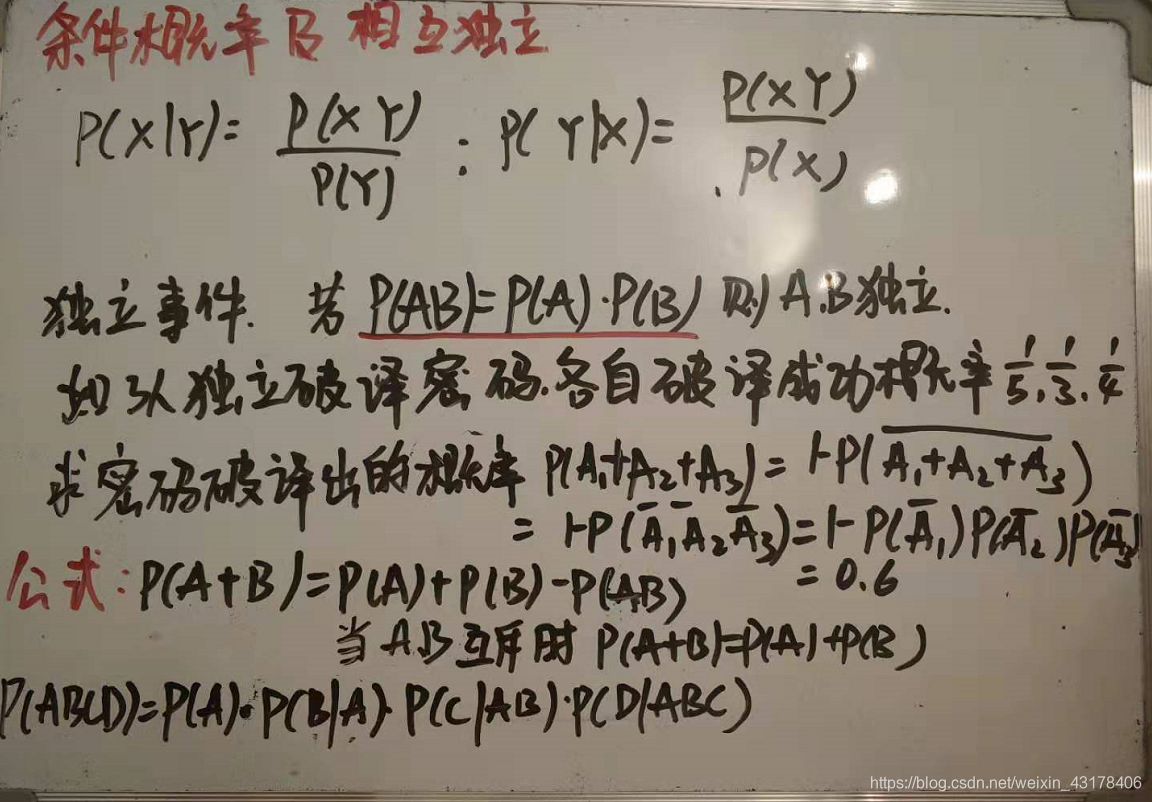 条件概率及相互独立
P(X|Y)= P(XY)/P(Y) ; P(Y|X)= P(XY)/P(X)
独立事件. 若 P(AB)=P(A)·P(B) 则 A.B独立.
如 3人独立破译密码.各自破译成功概率 1/5.1/3.1/4
求密码破译出的概率 P(A₁+A₂+A₃)= 1-P(\overline{A₁+A₂+A₃})
= 1-P(Ā₁Ā₂Ā₃)=1-P(Ā₁)P(Ā₂)P(Ā₃)
= 0.6
公式: P(A+B)=P(A)+P(B)-P(AB)
当AB互斥时 P(A+B)=P(A)+P(B)
P(ABCD)=P(A)·P(B|A)·P(C|AB)·P(D|ABC)
https://blog.csdn.net/weixin_43178406